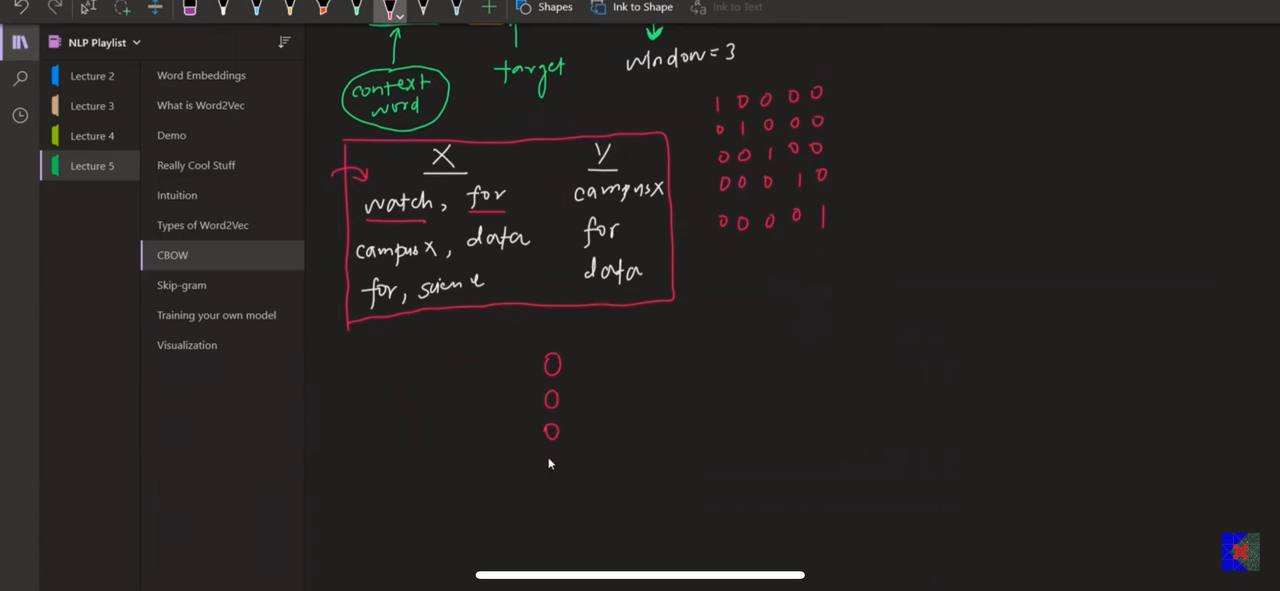 Shapes Ink to Shape Ink to Text
NLP Playlist
Lecture 2
Lecture 3
Lecture 4
Lecture 5
Word Embeddings
What is Word2Vec
Demo
Really Cool Stuff
Intuition
Types of Word2Vec
CBOW
Skip-gram
Training your own model
Visualization
context
word
target
window = 3
X Y
watch, for campusX
campusX, data for
for, science data
1 0 0 0 0
0 1 0 0 0
0 0 1 0 0
0 0 0 1 0
0 0 0 0 1